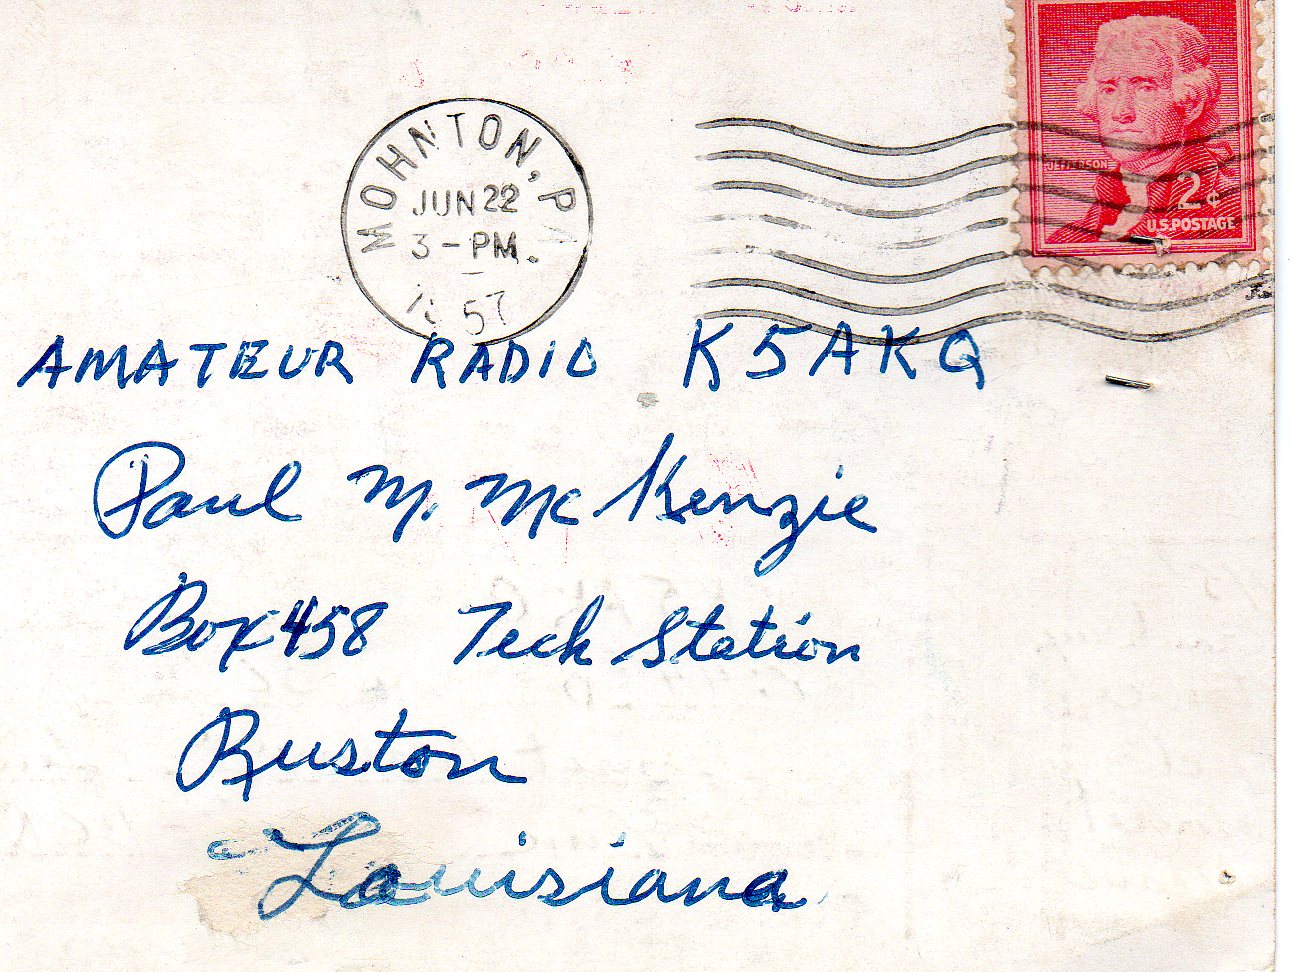 MOHNTON, PA
JUN 22
3 - PM.
57
JEFFERSON
2¢
U.S. POSTAGE
AMATEUR RADIO K5AKQ
Paul M. McKenzie
Box 458 Tech Station
Ruston
Louisiana